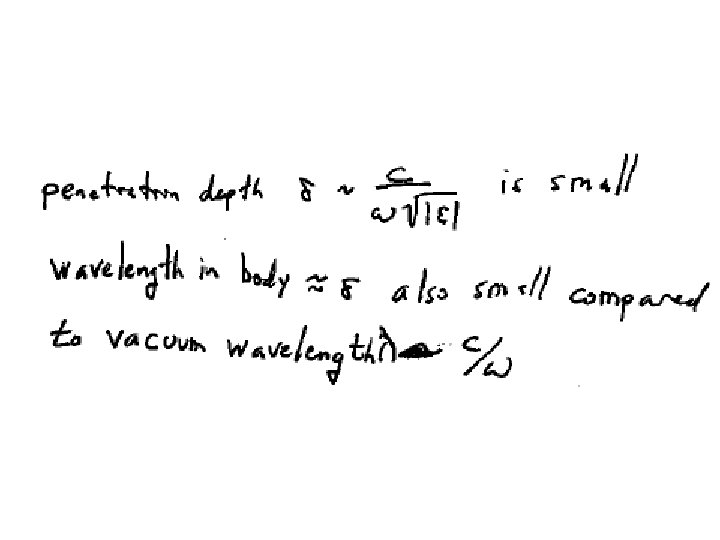 penetration depth δ ~ c / ω√|ε| is small
wavelength in body ≈ δ also small compared
to vacuum wavelength λ ~ c/ω